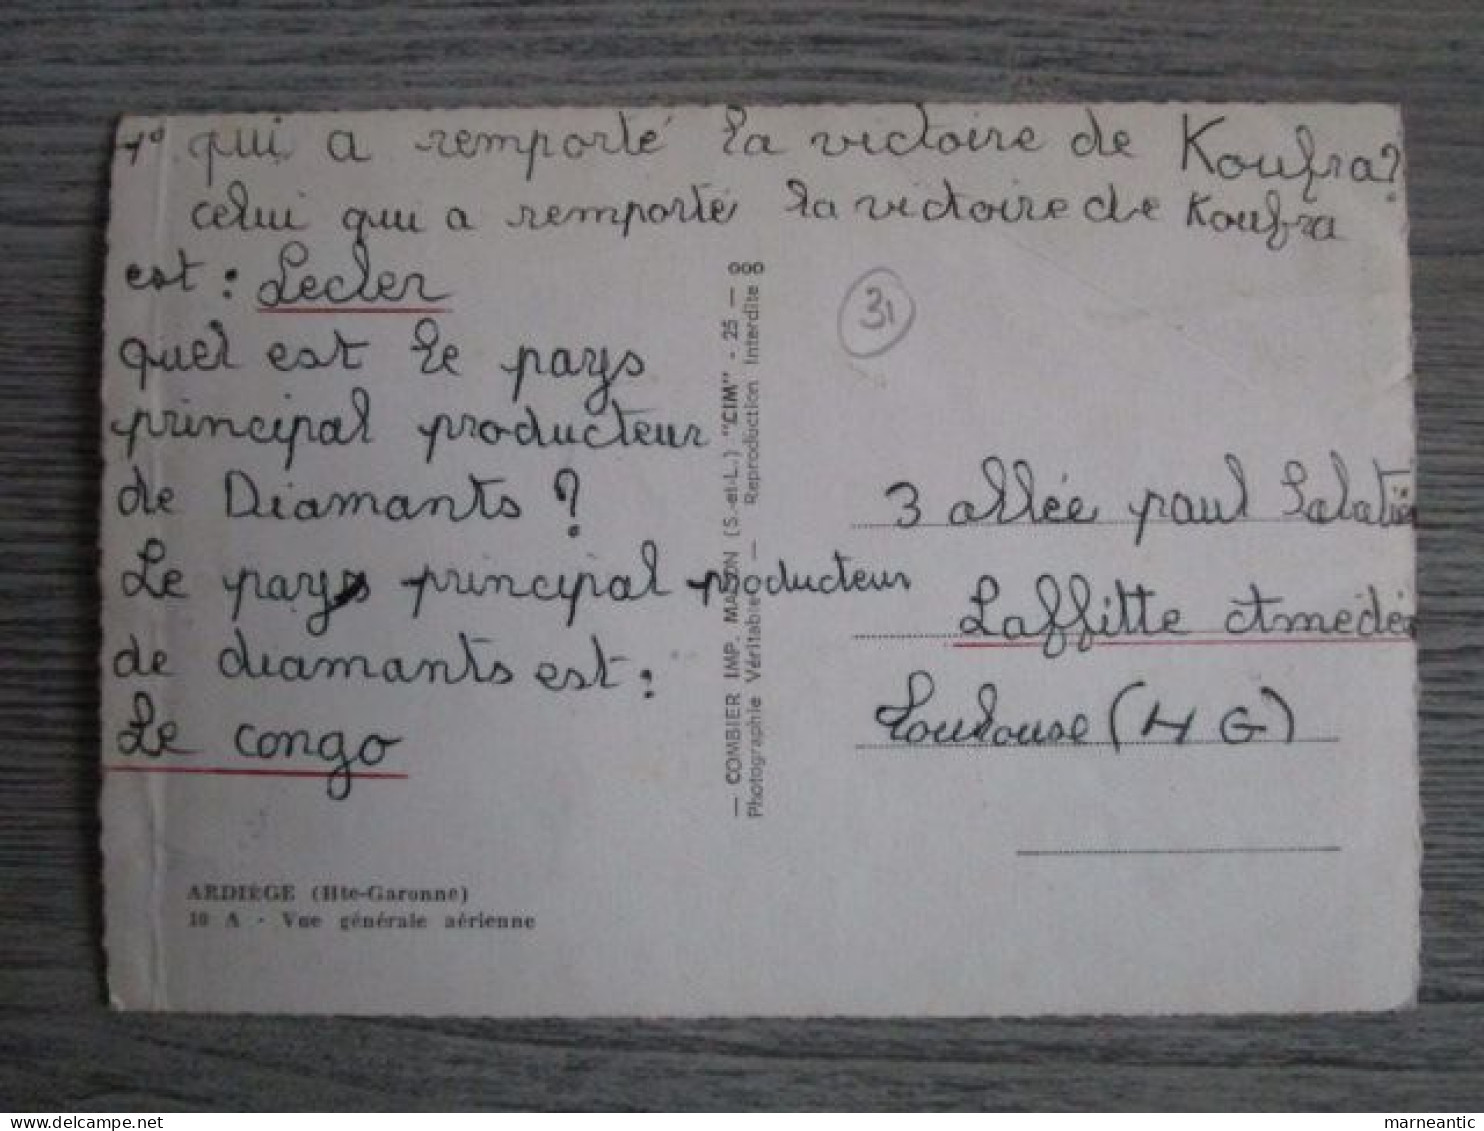 1° qui a remporté la victoire de Koufra?
celui qui a remporté la victoire de Koufra
est : Lecler
quel est le pays
principal producteur
de Diamants ?
Le pays principal producteur
de diamants est :
Le congo
ARDIÈGE (Hte-Garonne)
10 A - Vue générale aérienne
— COMBIER IMP. MACON (S.-et-L.) "CIM" - 25 — 000
Photographie Véritable — Reproduction Interdite
31
3 allée paul
Laffitte Amédé
Toulouse (H G)
marneantic